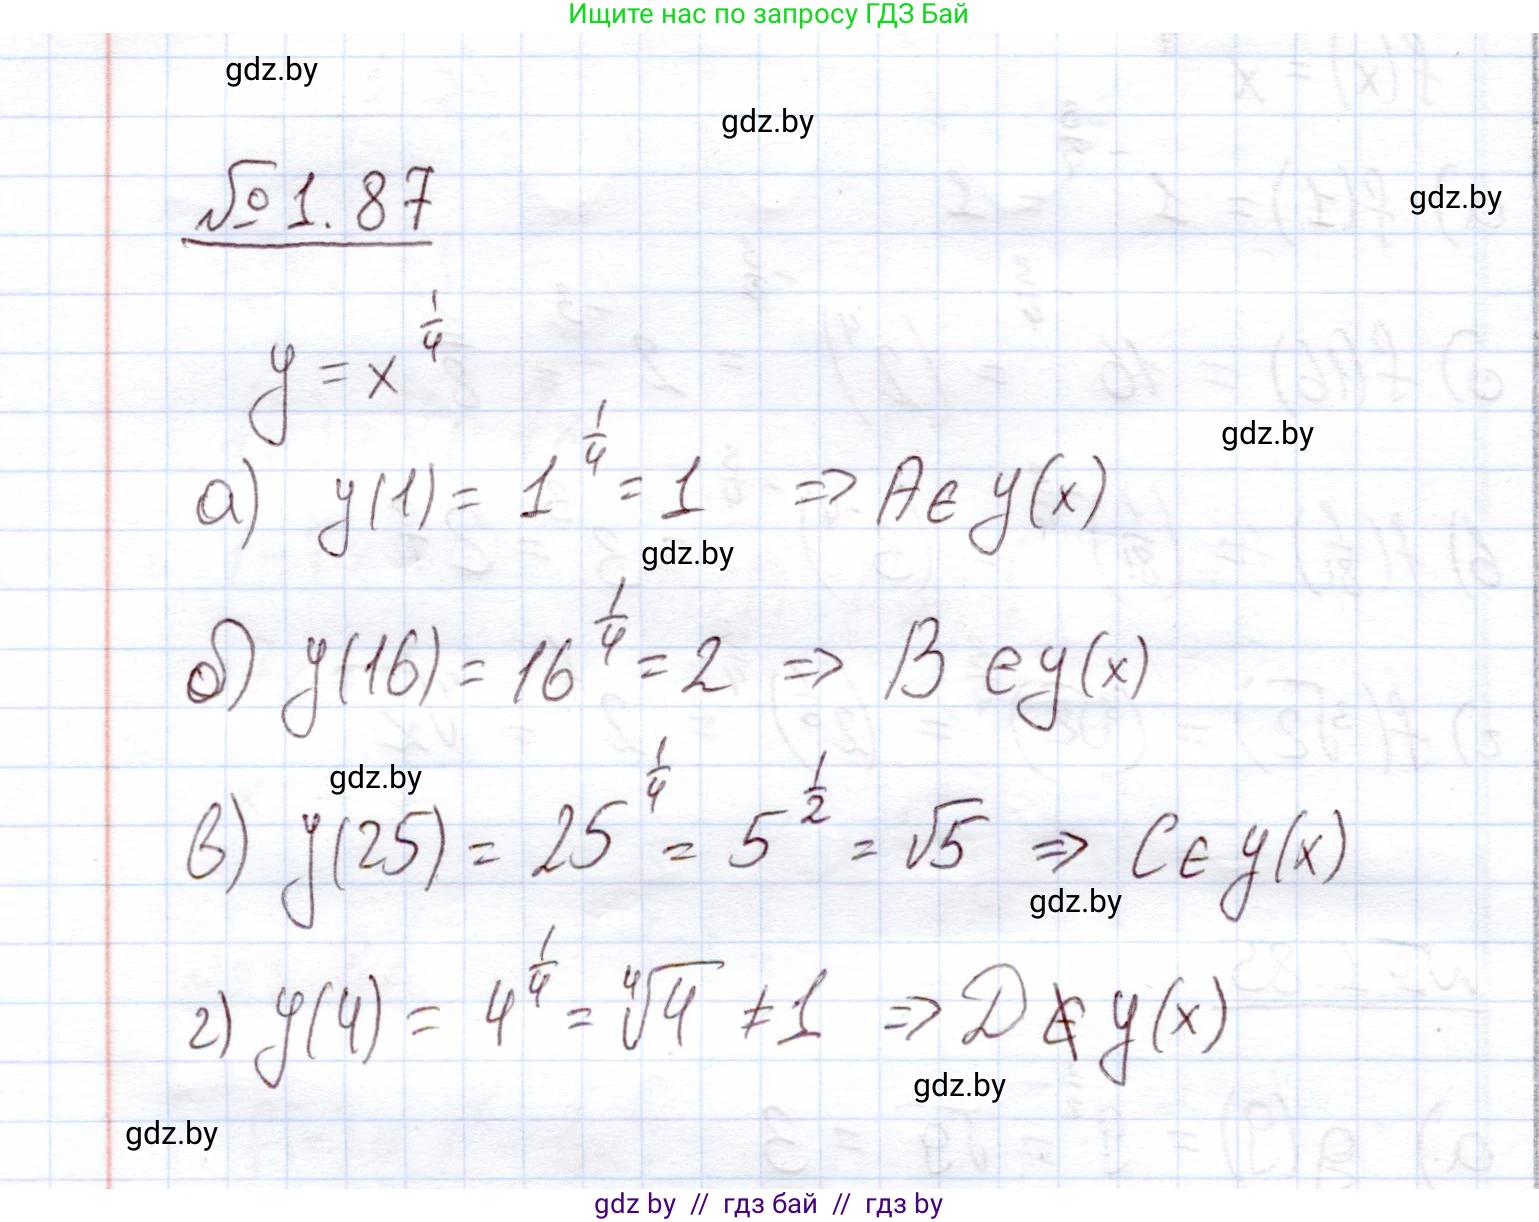 Ищите нас по запросу ГДЗ Бай
gdz.by
gdz.by
№ 1.87
gdz.by
y = x^(1/4)
gdz.by
а) y(1) = 1^(1/4) = 1 => A ∈ y(x)
gdz.by
б) y(16) = 16^(1/4) = 2 => B ∈ y(x)
gdz.by
в) y(25) = 25^(1/4) = 5^(1/2) = √5 => C ∈ y(x)
gdz.by
г) y(4) = 4^(1/4) = ⁴√4 ≠ 1 => D ∉ y(x)
gdz.by
gdz.by
gdz by // гдз бай // гдз by